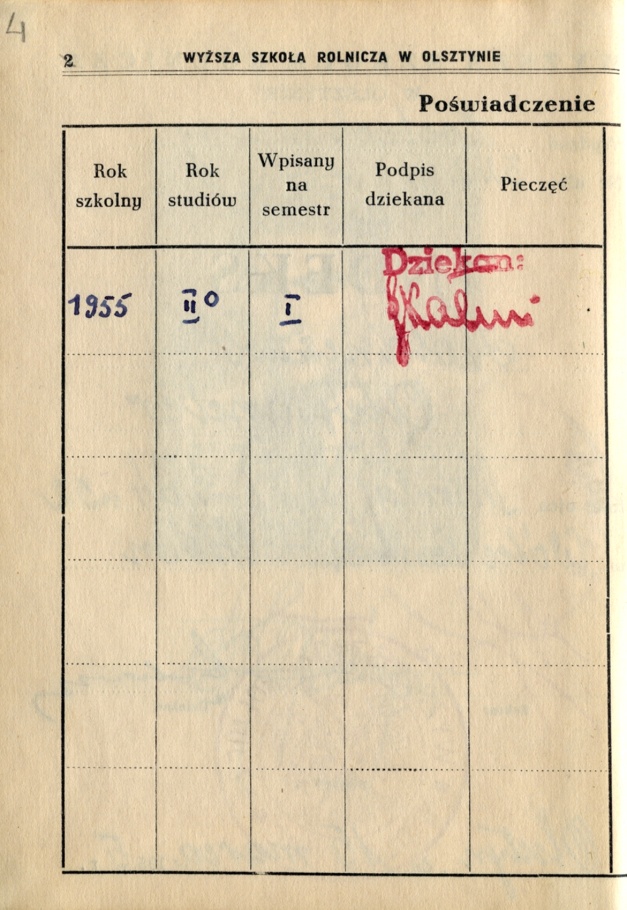 4
2 WYŻSZA SZKOŁA ROLNICZA W OLSZTYNIE
Poświadczenie
Rok szkolny
Rok studiów
Wpisany na semestr
Podpis dziekana
Pieczęć
Dziekan:
1955 II° I